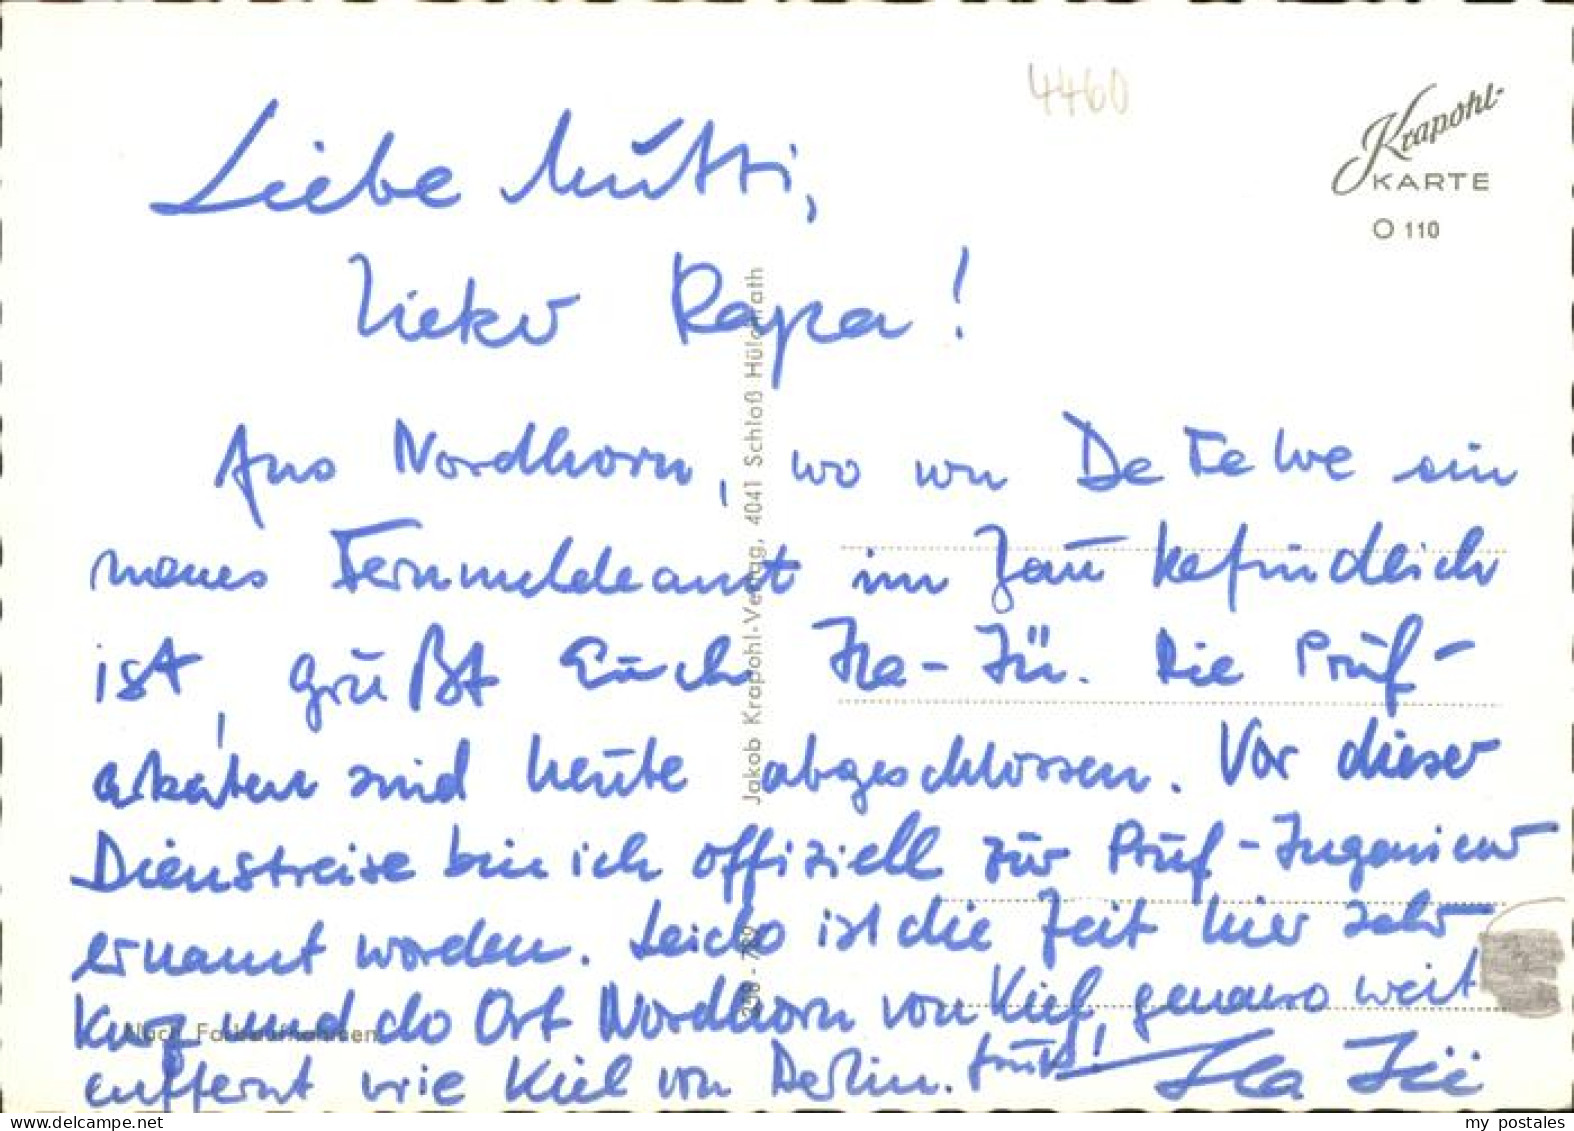 4460
Krapohl-
KARTE
O 110
Liebe Mutti,
lieber Papa!
Aus Nordhorn, wo von DeTeWe ein
neues Fernmeldeamt im Bau befindlich
ist, grüßt Euch Ha-Jü. Die Prüf-
arbeiten sind heute abgeschlossen. Vor dieser
Dienstreise bin ich offiziell zur Prüf-Ingenieur
ernannt worden. Leider ist die Zeit hier sehr
kurz und der Ort Nordhorn von Kiel genauso weit
entfernt wie Kiel von Berlin. Gruß! Ha Jü
Nach Farbaufnahmen
Jakob Krapohl-Verlag, 4041 Schloß Hülchrath
my postales
www.delcampe.net